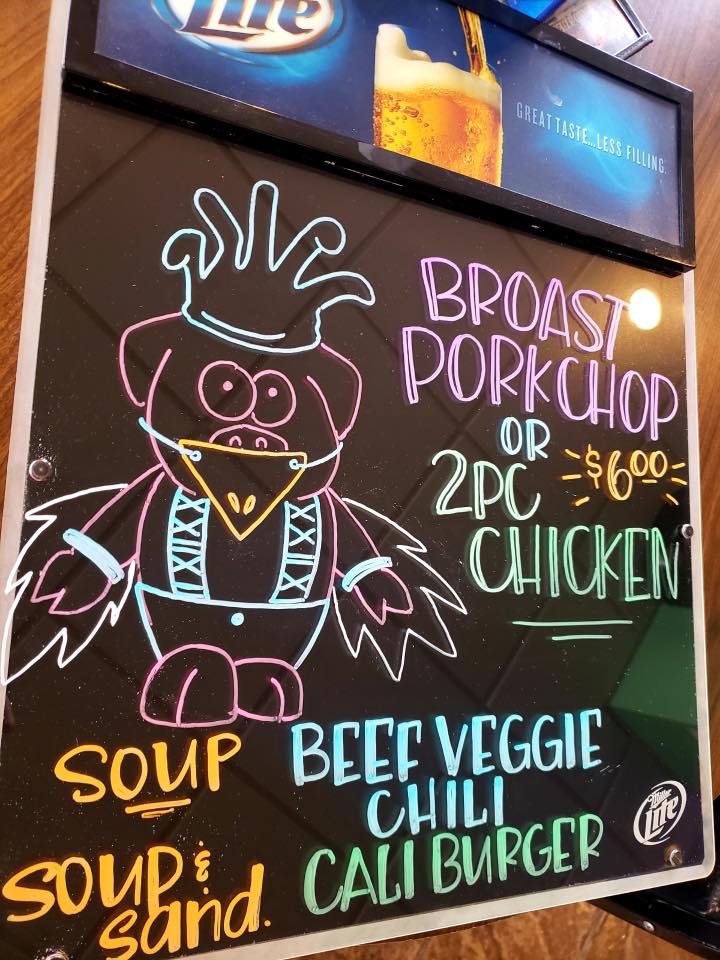 Lite
GREAT TASTE...LESS FILLING.
BROAST
PORKCHOP
OR
$6.00
2PC
CHICKEN
SOUP
BEEF VEGGIE
CHILI
SOUP &
Sand.
CALI BURGER
Miller
Lite